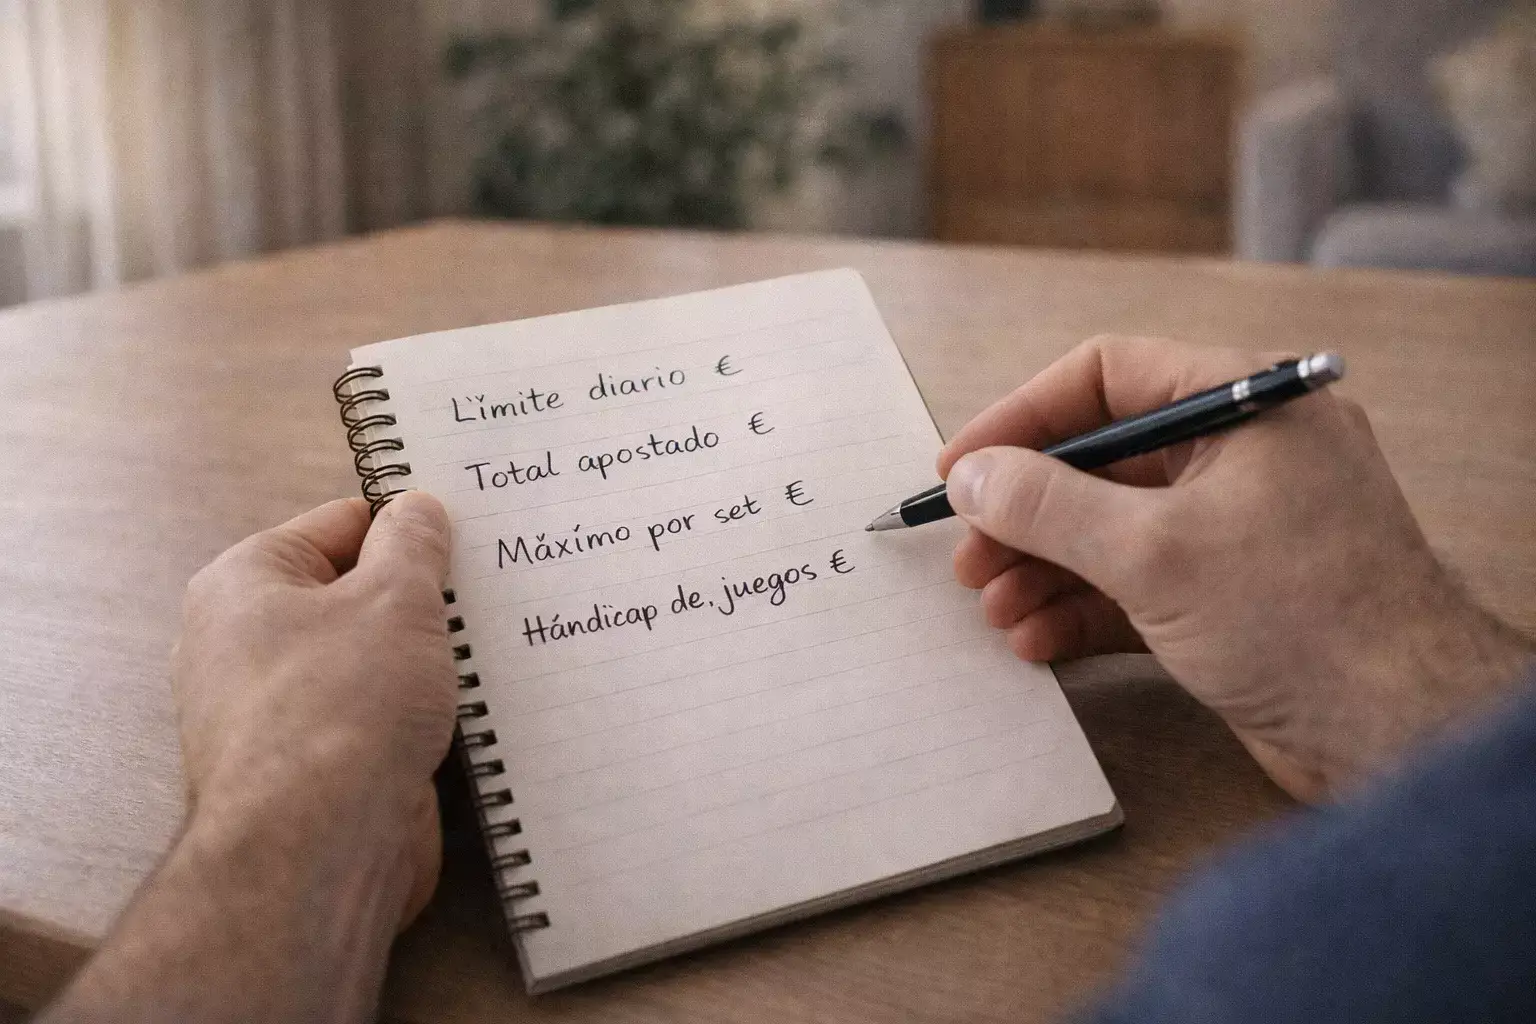 Límite diario €
Total apostado €
Máxímo por set €
Hándicap de, juegos €